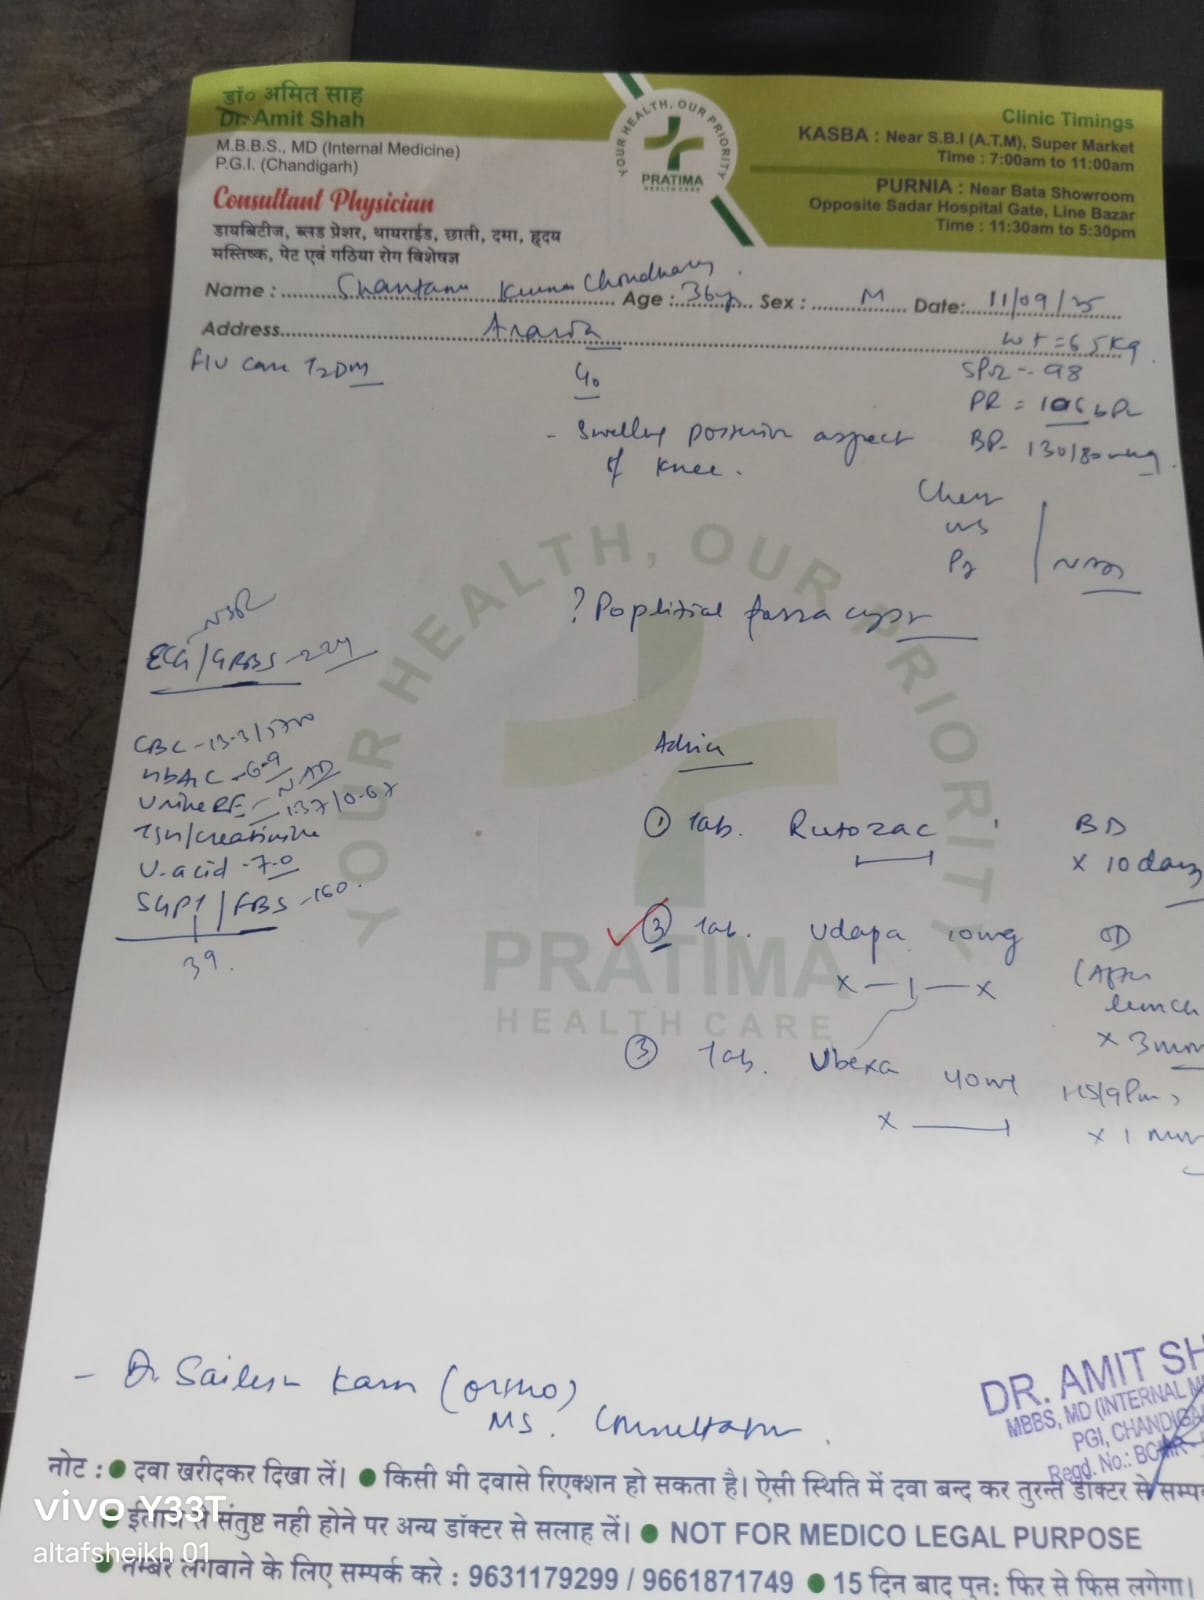 डॉ० अमित साह
Dr. Amit Shah
M.B.B.S., MD (Internal Medicine)
P.G.I. (Chandigarh)
Consultant Physician
डायबिटीज, ब्लड प्रेशर, थायराईड, छाती, दमा, हृदय
मस्तिष्क, पेट एवं गठिया रोग विशेषज्ञ
YOUR HEALTH, OUR PRIORITY
PRATIMA
HEALTH CARE
Clinic Timings
KASBA : Near S.B.I (A.T.M), Super Market
Time : 7:00am to 11:00am
PURNIA : Near Bata Showroom
Opposite Sadar Hospital Gate, Line Bazar
Time : 11:30am to 5:30pm
Name : Shantanu Kumar Choudhary Age : 36y Sex : M Date: 11/09/25
Address
wt = 65kg
F/U case T2DM
C/o
SPO2 - 98
- Swelling posterior aspect
of knee.
BP - 130/80
Chest
? Popliteal fossa cyst
NSR
ECG/GRBS - 224
CBC - 13.3/5700
HbA1C - 6.9
Urine RE - NAD
TSH/creatinine - 1.37/0.67
U. acid - 7.0
SGPT/FBS - 160
39.
YOUR HEALTH, OUR PRIORITY
PRATIMA
HEALTH CARE
Advice
① Tab. Rutozac BD
x 10 days
③ Tab. Udapa 10mg OD
x — 1 — x (After
lunch
③ Tab. 40mg HS/9pm
- Dr. Sailesh Karn (ortho)
MS. Consultant
DR. AMIT SH
MBBS, MD (INTERNAL M
PGI, CHANDIGA
Regd. No.:
नोट : ● दवा खरीदकर दिखा लें। ● किसी भी दवासे रिएक्शन हो सकता है। ऐसी स्थिति में दवा बन्द कर तुरन्त डॉक्टर से सम्प
● ईलाज से संतुष्ट नही होने पर अन्य डॉक्टर से सलाह लें। ● NOT FOR MEDICO LEGAL PURPOSE
● नम्बर लगवाने के लिए सम्पर्क करे : 9631179299 / 9661871749 ● 15 दिन बाद पुन: फिर से फिस लगेगा।
vivo Y33T
altafsheikh 01